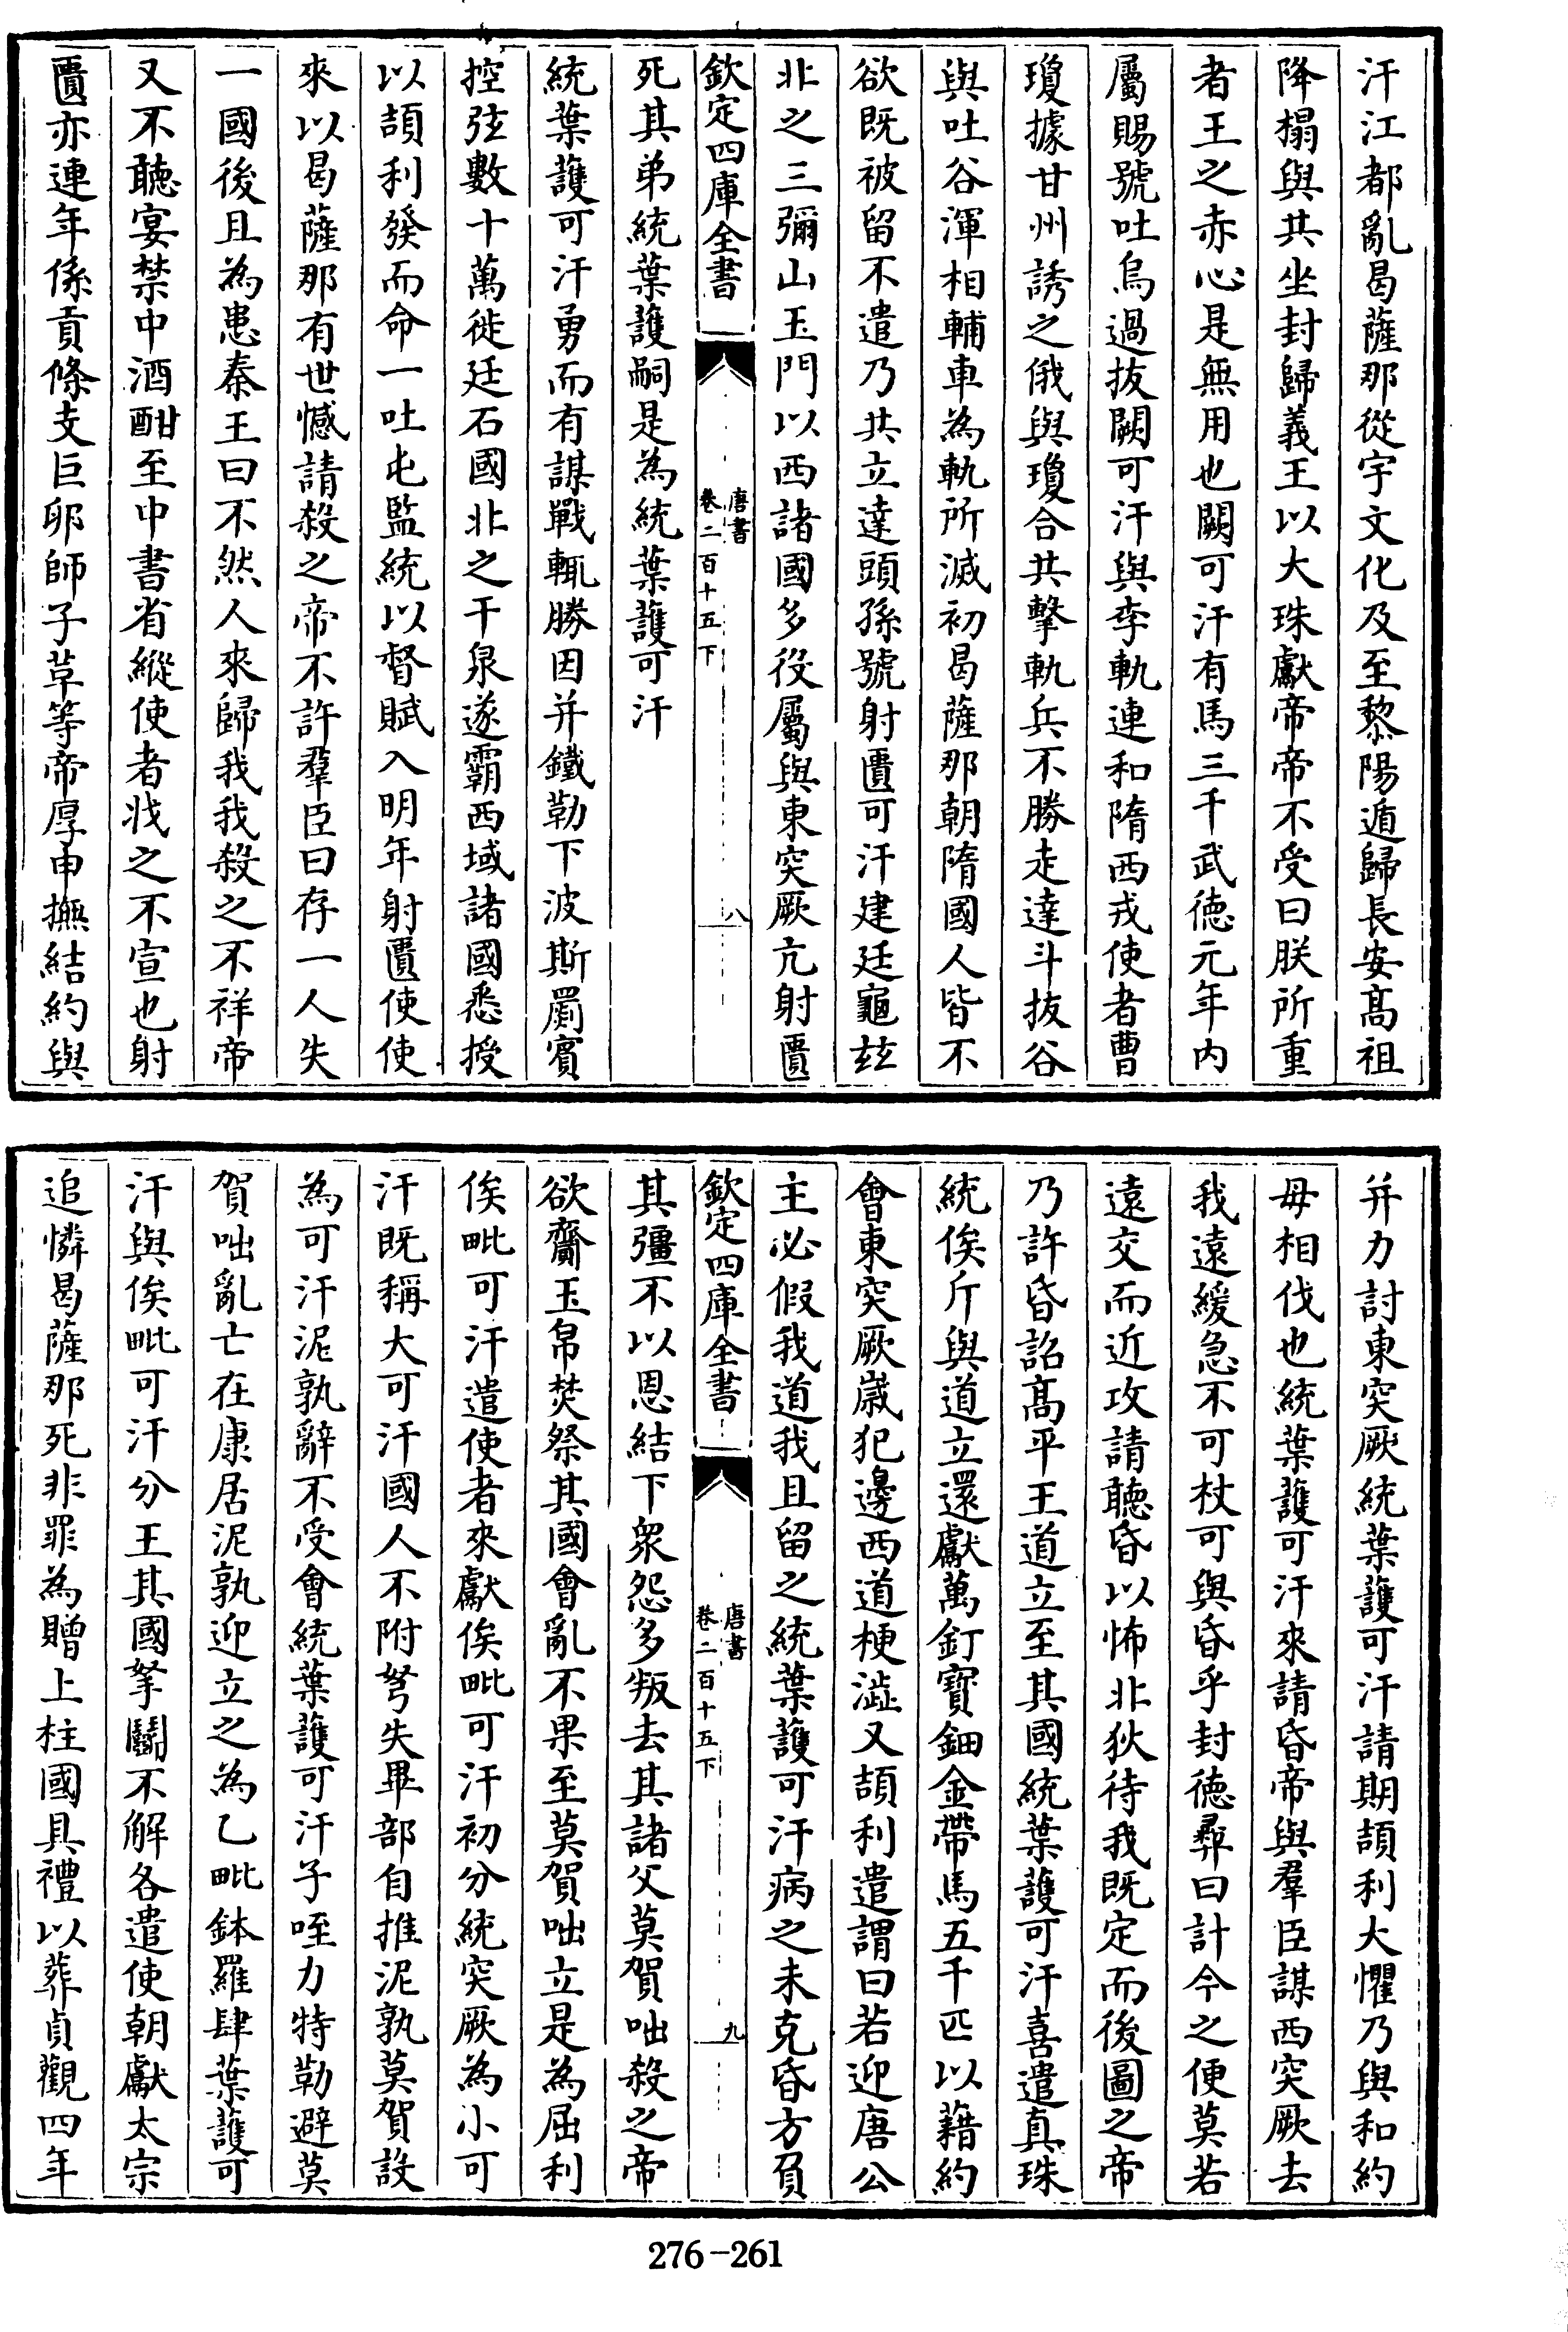 汗江都亂曷薩那從宇文化及至黎陽遁歸長安髙祖
降榻與共坐封歸義王以大珠獻帝帝不受曰朕所重
者王之赤心是無用也闕可汗有馬三千武徳元年内
屬賜號吐烏過拔闕可汗與李軌連和隋西戎使者曹
瓊據甘州誘之俄與瓊合共擊軌兵不勝走達斗拔谷
與吐谷渾相輔車為軌所滅初曷薩那朝隋國人皆不
欲既被留不遣乃共立達頭孫號射匱可汗建廷龜兹
北之三彌山玉門以西諸國多役屬與東突厥亢射匱
欽定四庫全書
唐書
卷二百十五下
八
死其弟統葉護嗣是為統葉護可汗
統葉護可汗勇而有謀戰輒勝因并鐵勒下波斯罽賓
控弦數十萬徙廷石國北之千泉遂霸西域諸國悉授
以頡利發而命一吐屯監統以督賦入明年射匱使使
來以曷薩那有世憾請殺之帝不許羣臣曰存一人失
一國後且為患秦王曰不然人來歸我我殺之不祥帝
又不聽宴禁中酒酣至中書省縱使者戕之不宣也射
匱亦連年係貢條支巨卵師子草等帝厚申撫結約與
并力討東突厥統葉護可汗請期頡利大懼乃與和約
毋相伐也統葉護可汗來請昏帝與羣臣謀西突厥去
我遠緩急不可杖可與昏乎封徳彛曰計今之便莫若
遠交而近攻請聽昏以怖北狄待我既定而後圖之帝
乃許昏詔髙平王道立至其國統葉護可汗喜遣真珠
統俟斤與道立還獻萬釘寶鈿金帶馬五千匹以藉約
會東突厥嵗犯邊西道梗澁又頡利遣謂曰若迎唐公
主必假我道我且留之統葉護可汗病之未克昏方負
欽定四庫全書
唐書
卷二百十五下
九
其彊不以恩結下衆怨多叛去其諸父莫賀咄殺之帝
欲齎玉帛焚祭其國會亂不果至莫賀咄立是為屈利
俟毗可汗遣使者來獻俟毗可汗初分統突厥為小可
汗既稱大可汗國人不附弩失畢部自推泥孰莫賀設
為可汗泥孰辭不受會統葉護可汗子咥力特勒避莫
賀咄亂亡在康居泥孰迎立之為乙毗鉢羅肆葉護可
汗與俟毗可汗分王其國拏鬬不解各遣使朝獻太宗
追憐曷薩那死非罪為贈上柱國具禮以葬貞觀四年
276-261